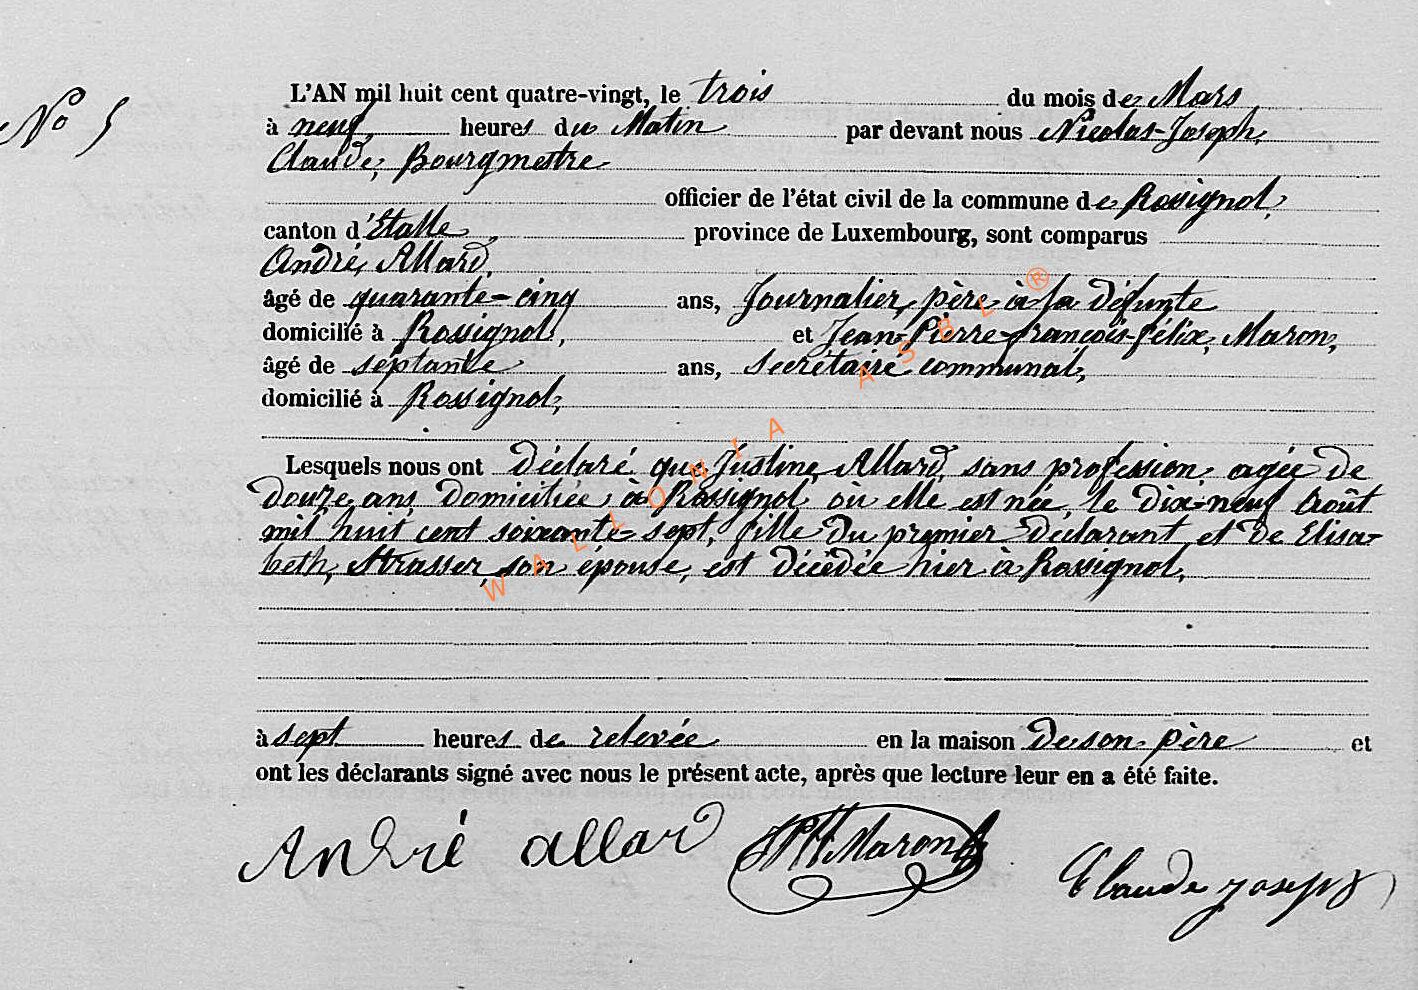 No 5
L'AN mil huit cent quatre-vingt, le trois du mois de Mars
à neuf heures du Matin par devant nous Nicolas-Joseph,
Claude, Bourgmestre
officier de l'état civil de la commune de Rossignol,
canton d'Etalle, province de Luxembourg, sont comparus
André, Allard,
âgé de quarante-cinq ans, Journalier, père à la défunte
domicilié à Rossignol, et Jean-Pierre-françois-félix, Maron,
âgé de septante ans, secrétaire communal,
domicilié à Rossignol,
Lesquels nous ont déclaré que Justine, Allard, sans profession, agée de
douze ans, domiciliée à Rossignol, où elle est née, le dix-neuf Août
mil huit cent soixante-sept, fille du premier déclarant et de Elisa-
beth, Strasser, son épouse, est décédée hier à Rossignol,
à sept heures de relevée en la maison de son père et
ont les déclarants signé avec nous le présent acte, après que lecture leur en a été faite.
André allard Maron Claude Joseph
WALLONIA ASBL ®